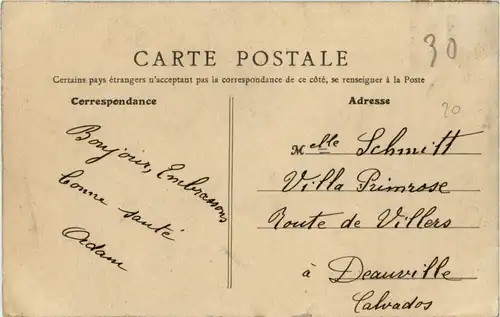 CARTE POSTALE
Certains pays étrangers n'acceptant pas la correspondance de ce côté, se renseigner à la Poste
Correspondance
Bonjour, Embrassons
bonne santé
Adam
Adresse
Melle Schmitt
Villa Primrose
Route de Villers
à Deauville
Calvados
30
20